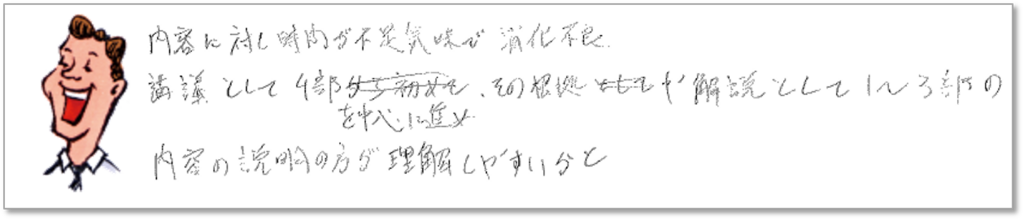 内容に対し時間が不足気味で消化不良.
講議として4部から初めて、その根拠ともなるや解説として1〜3部の
を中心に進め
内容の説明の方が理解しやすいかと